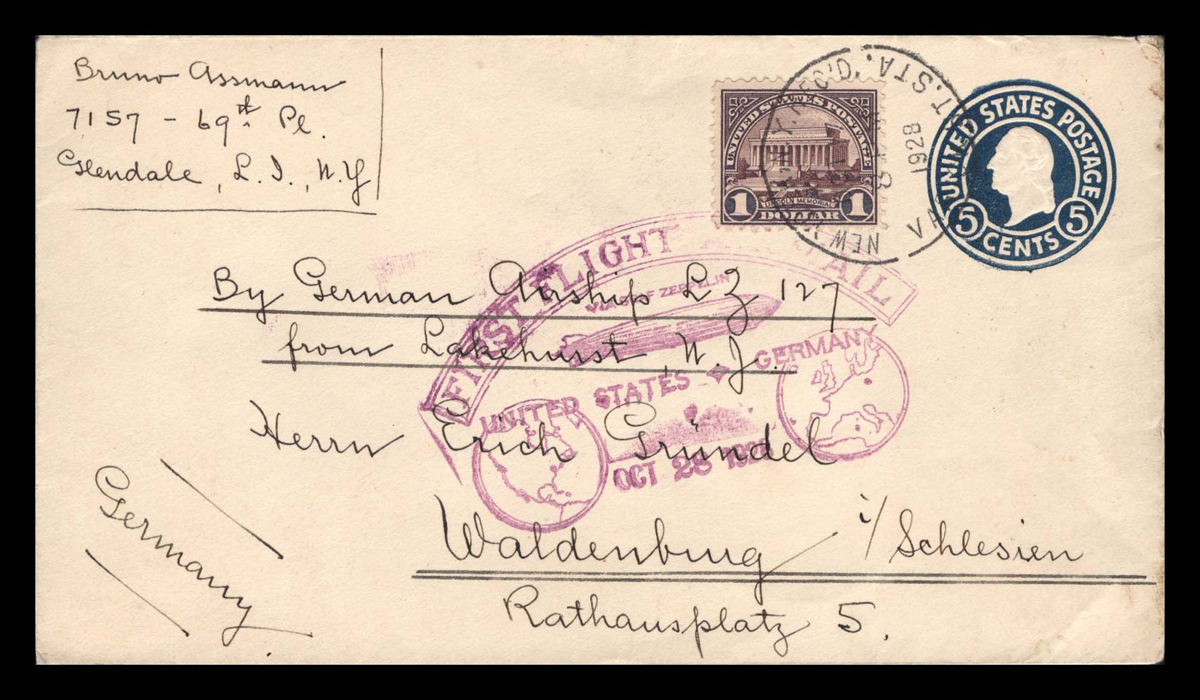 Bruno Assmann
7157 - 69th Pl.
Glendale, L. I., N.Y
UNITED STATES POSTAGE
1 1
LINCOLN MEMORIAL
DOLLAR
T. STA.
1928
NEW
UNITED STATES POSTAGE
5 5
CENTS
FIRST FLIGHT MAIL
By German Airship L Z 127
ZEPPELIN
from Lakehurst, N. J.
UNITED STATES GERMANY
Herrn Erich Gründel
OCT 28
Germany
Waldenburg i/Schlesien
Rathausplatz 5.